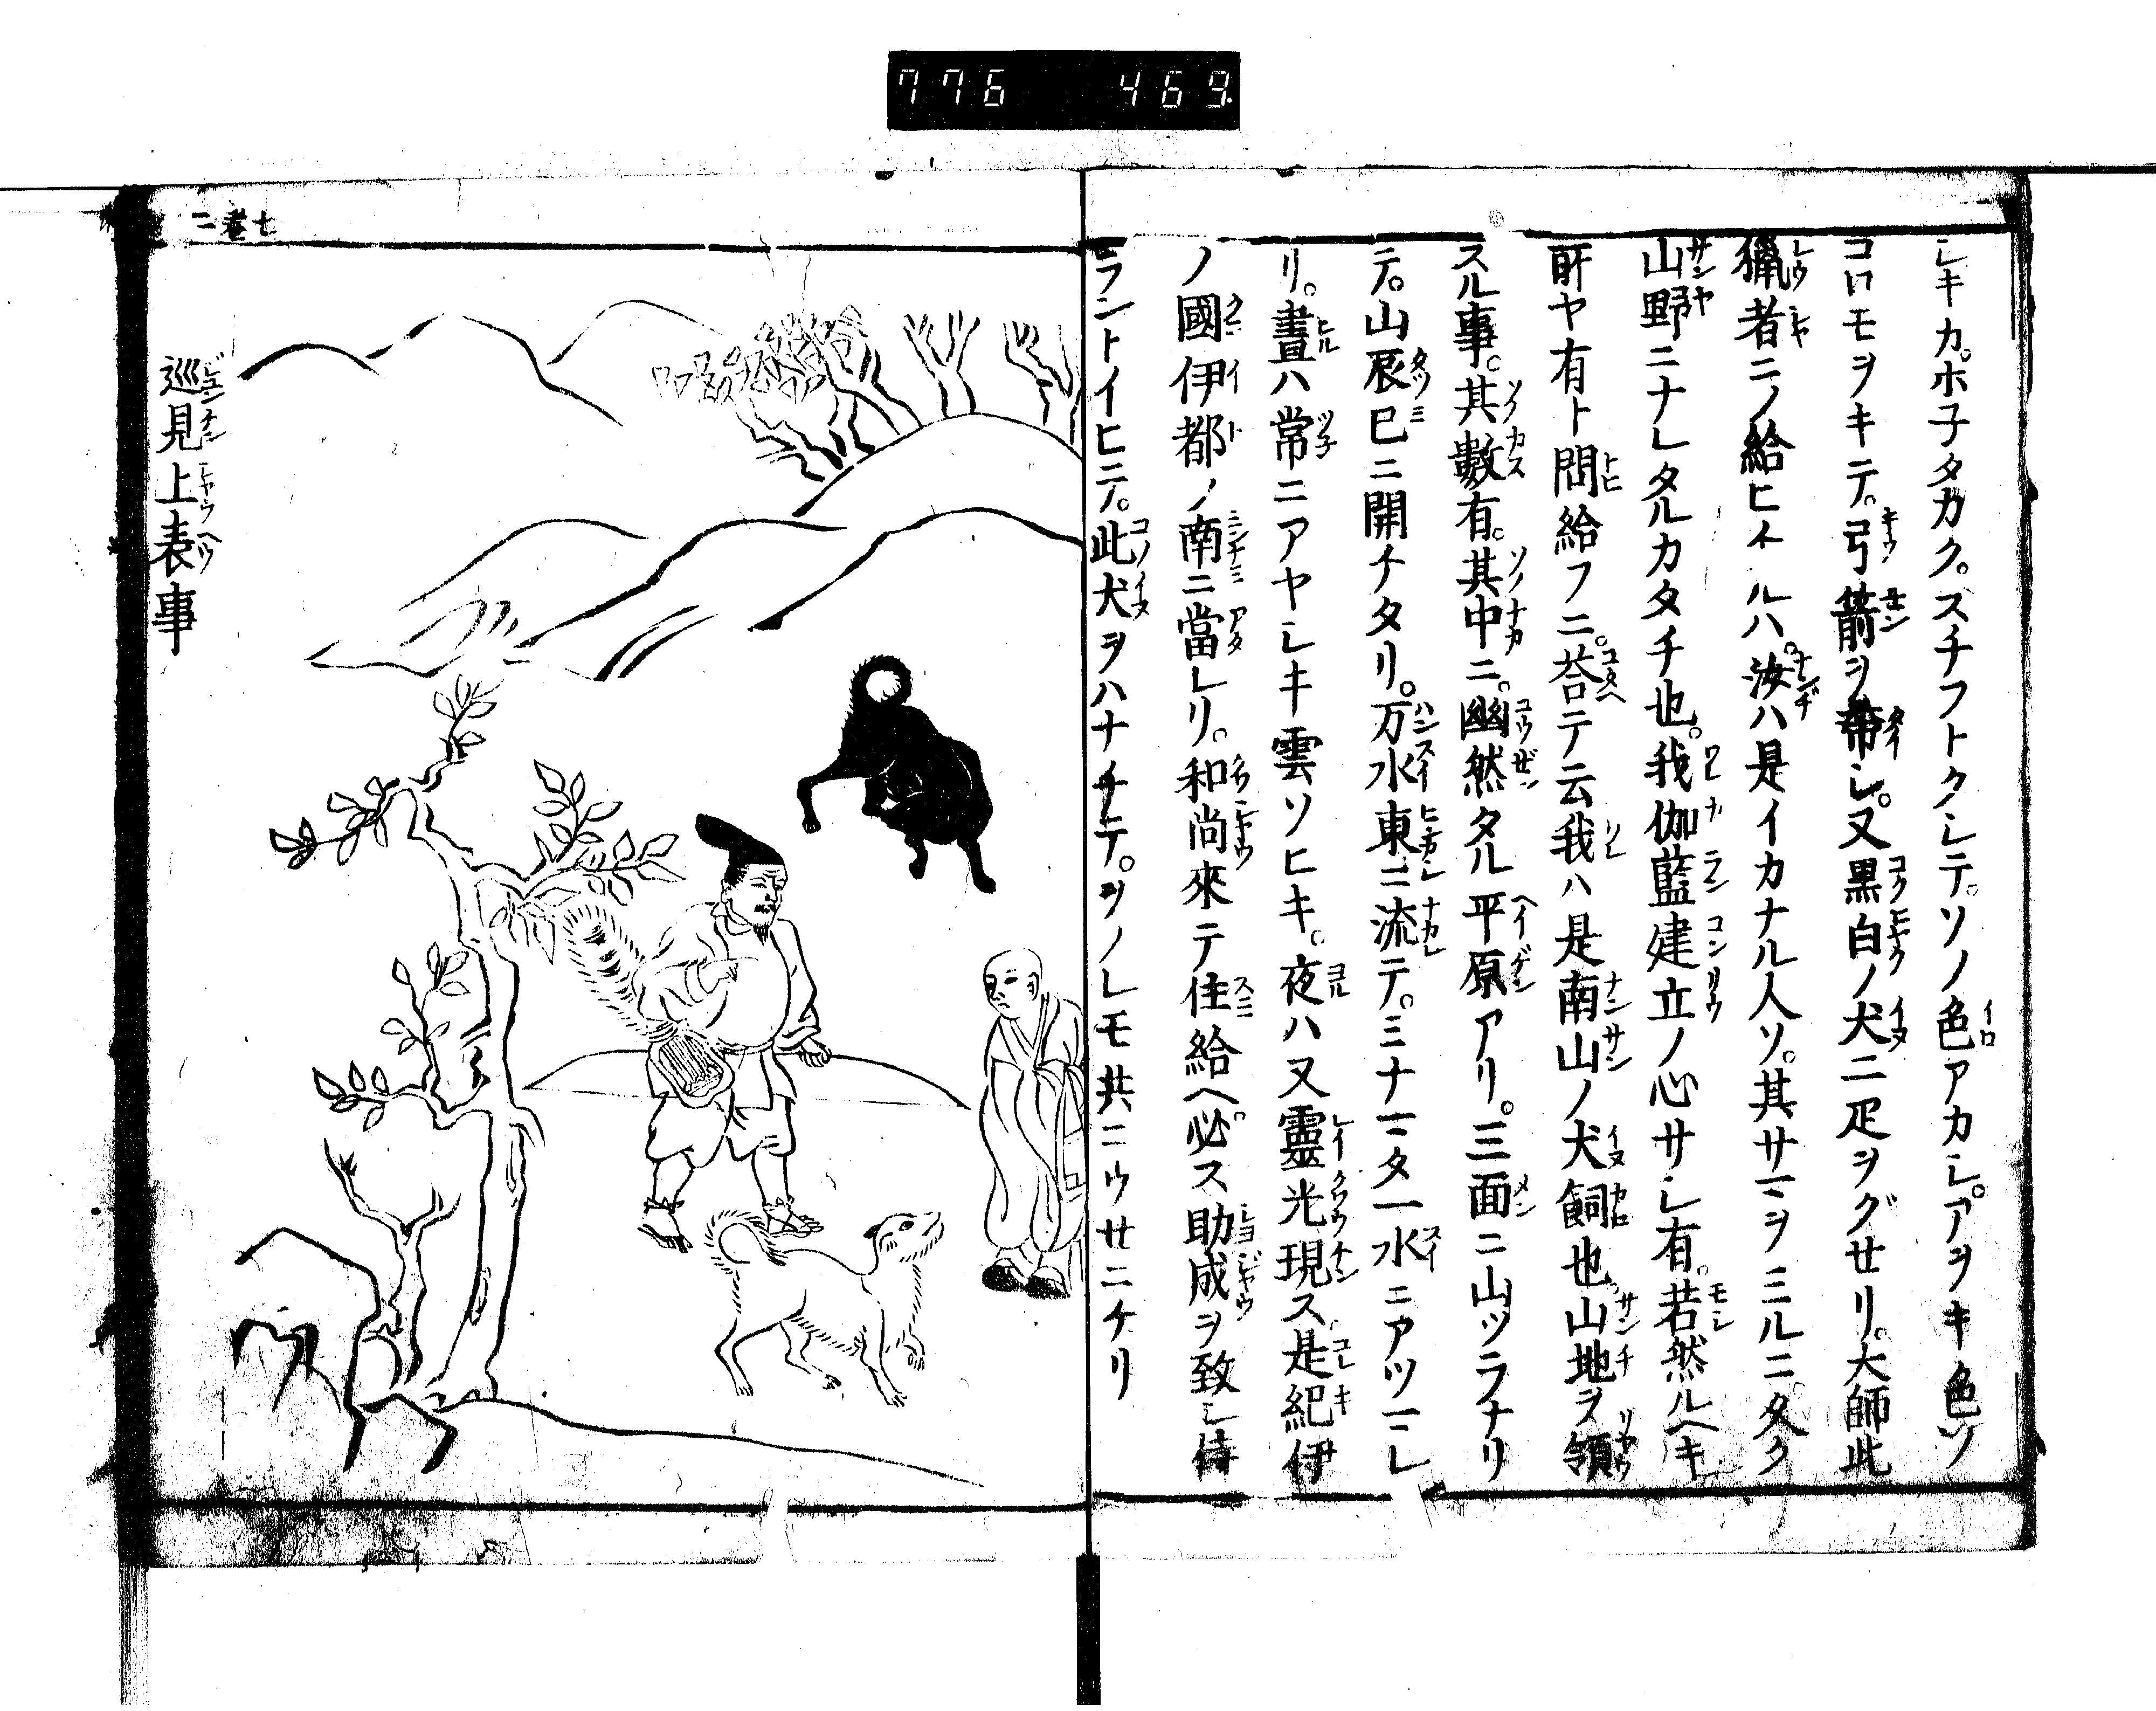 776 469
シキカホ子タカク。スチフトクシテ。ソノ色アカシ。アヲキ色ノ
コロモヲキテ。弓箭ヲ帯シ。又黒白ノ犬二疋ヲグせリ。大師此
獵者ニノ給ヒケルハ。汝ハ是イカナル人ソ。其サマヲミルニ。久ク
山野ニナレタルカタチ也。我伽藍建立ノ心サシ有。若然ルヘキ
所ヤ有ト問給フニ。荅テ云我ハ是南山ノ犬飼也。山地ヲ領
スル事。其數有。其中ニ。幽然タル平原アリ。三面ニ山ツラナリ
テ。山辰巳ニ開チタリ。万水東ニ流テ。ミナマタ一水ニアツマレ
リ。晝ハ常ニアヤシキ雲ソヒキ。夜ハ又靈光現ス。是紀伊
ノ國伊都ノ南ニ當レリ。和尚來テ住給ヘ。必ス助成ヲ致シ侍
ラントイヒテ。此犬ヲハナチテ。ヲノレモ共ニウせニケリ
二巻七
巡見上表事